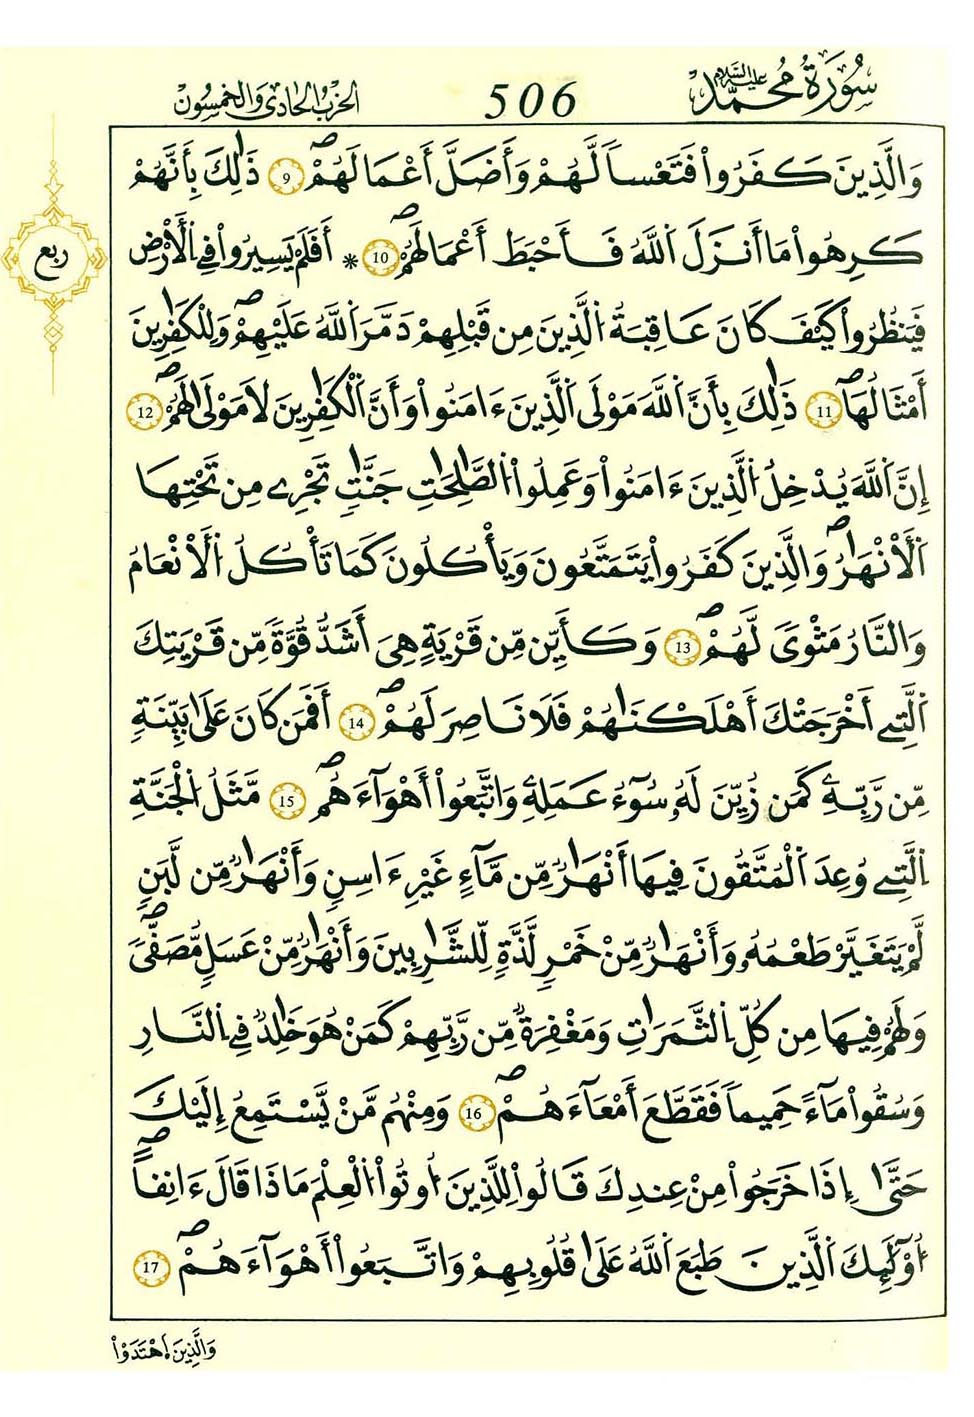 سُورَةُ مُحَمَّد عليه السلام
506
الحزب الحادي والخمسون
وَالَّذِينَ كَفَرُواْ فَتَعْساً لَّهُمْ وَأَضَلَّ أَعْمَٰلَهُمْۖ 9 ذَٰلِكَ بِأَنَّهُمْ
كَرِهُواْ مَا أَنزَلَ اَللَّهُ فَأَحْبَطَ أَعْمَٰلَهُمْۖ 10 * أَفَلَمْ يَسِيرُواْ فِي اِلَارْضِ
ربع
فَيَنظُرُواْ كَيْفَ كَانَ عَٰقِبَةُ اُلَّذِينَ مِن قَبْلِهِمْ دَمَّرَ اَللَّهُ عَلَيْهِمْۖ وَلِلْكَٰفِرِينَ
أَمْثَٰلُهَاۖ 11 ذَٰلِكَ بِأَنَّ اَللَّهَ مَوْلَى اَلَّذِينَ ءَامَنُواْ وَأَنَّ اَلْكَٰفِرِينَ لَا مَوْلَىٰ لَهُمْۖ 12
إِنَّ اَللَّهَ يُدْخِلُ اُلَّذِينَ ءَامَنُواْ وَعَمِلُواْ اُلصَّٰلِحَٰتِ جَنَّٰتٍ تَجْرِے مِن تَحْتِهَا
اَلَانْهَٰرُۖ وَالَّذِينَ كَفَرُواْ يَتَمَتَّعُونَ وَيَأْكُلُونَ كَمَا تَأْكُلُ اُلَانْعَٰمُ
وَالنَّارُ مَثْوىً لَّهُمْۖ 13 وَكَأَيِّن مِّن قَرْيَةٍ هِيَ أَشَدُّ قُوَّةً مِّن قَرْيَتِكَ
اَلَّتِے أَخْرَجَتْكَ أَهْلَكْنَٰهُمْ فَلَا نَاصِرَ لَهُمْۖ 14 أَفَمَن كَانَ عَلَىٰ بَيِّنَةٍ
مِّن رَّبِّهِۦ كَمَن زُيِّنَ لَهُۥ سُوٓءُ عَمَلِهِۦ وَاتَّبَعُواْ أَهْوَآءَهُمْۖ 15 مَّثَلُ اُلْجَنَّةِ
اِلَّتِے وُعِدَ اَلْمُتَّقُونَ فِيهَا أَنْهَٰرٌ مِّن مَّآءٍ غَيْرِ ءَاسِنٍ وَأَنْهَٰرٌ مِّن لَّبَنٍ
لَّمْ يَتَغَيَّرْ طَعْمُهُۥ وَأَنْهَٰرٌ مِّنْ خَمْرٍ لَّذَّةٍ لِّلشَّٰرِبِينَ وَأَنْهَٰرٌ مِّنْ عَسَلٍ مُّصَفّىًۖ
وَلَهُمْ فِيهَا مِن كُلِّ اِلثَّمَرَٰتِ وَمَغْفِرَةٌ مِّن رَّبِّهِمْ كَمَنْ هُوَ خَٰلِدٌ فِي اِلنَّارِ
وَسُقُواْ مَآءً حَمِيماً فَقَطَّعَ أَمْعَآءَهُمْۖ 16 وَمِنْهُم مَّنْ يَّسْتَمِعُ إِلَيْكَ
حَتَّىٰ إِذَا خَرَجُواْ مِنْ عِندِكَ قَالُواْ لِلَّذِينَ أُوتُواْ اُلْعِلْمَ مَاذَا قَالَ ءَانِفاًۖ
اُوْلَٰٓئِكَ اَلَّذِينَ طَبَعَ اَللَّهُ عَلَىٰ قُلُوبِهِمْ وَاتَّبَعُواْ أَهْوَآءَهُمْۖ 17
وَالَّذِينَ اَهْتَدَوْاْ